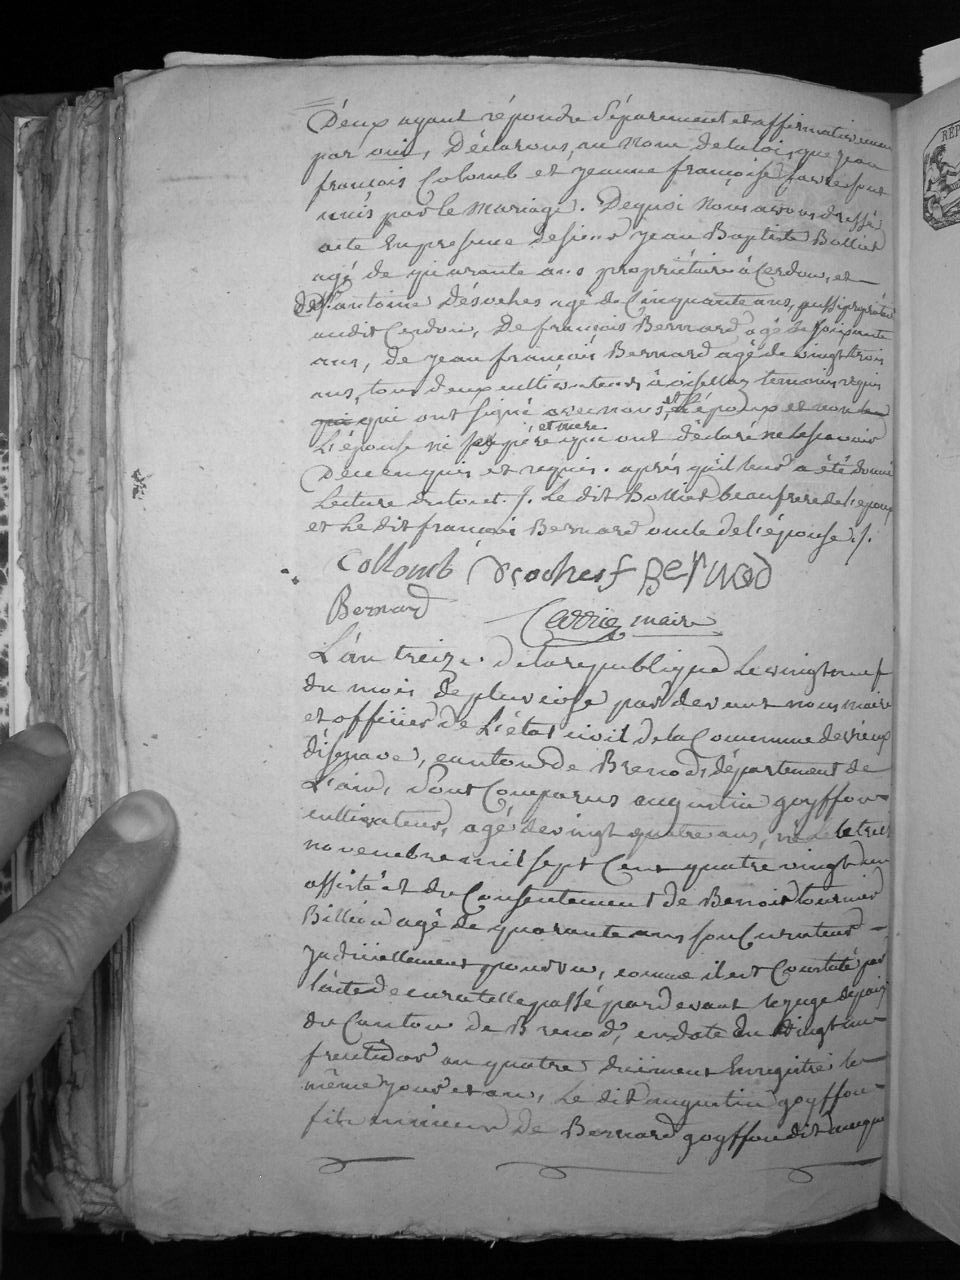 D'eux ayant répondu séparement et affirmativement
par oui, Déclarons, au nom de la loi, que jean
françois Colomb et jeanne françoise favre sont
unis par le mariage. De quoi Nous avons dressé
acte En presence de sieur jean Baptiste Bolliet
agé de quarante ans propriétaire à Cerdon, et
de Sr. antoine Désvches agé de Cinquante ans, aussi propriétaire
audit Cerdon, De françois Bernard agé de soixante
ans, de jean françois Bernard agé de vingt trois
ans, tous deux cultivateurs à oisellaz temoins requis
qui qui ont signé avec nous, et l'époux et non
L'épouse ni ses père et mere que ont déclaré ne le scavoir
De ce enquis et requis. après qu'il leur a été donné
Lecture du tout /. Le dit Bolliet beaufrere de l'époux
et Le dit françois Bernard oncle de l'épouse ./.
Collomb Dsochesf Bernad
Bernard Carrier maire
L'an treize de la republique Le vingt neuf
du mois De pluviose par devant nous maire
et officier de L'état civil de la Commune de vieux
disenave, canton de Brenod, département de
L'ain, Sont Comparus augustin goyffon
cultivateur, agé de vingt quatre ans, né le treize
novembre mil sept Cent quatre vingt un
assisté et du Consentement de Benoit tournier
Billion agé de quarante ans son Curateur
judiciellement pourvu, comme il est Constaté par
l'acte de curatelle passé pardevant le juge de paix
du Canton de Brenod, en date du vingt un
fructidor an quatre duement Enregistré le
même jour et an, Le dit augustin goyffon
fils mineur de Bernard goyffon dit